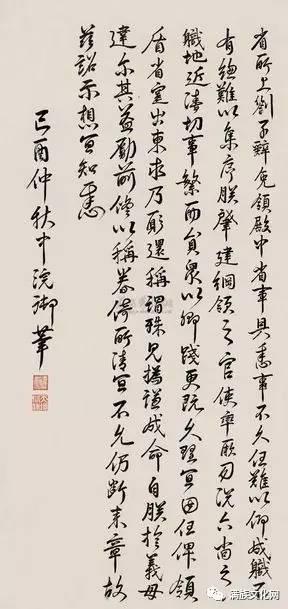 省所上劄子辤免領殿中省事具悉事不久任難以仰成職不
有總難以集序朕肇建綱領之官使率厥司況六尚之
職地近清切事繁而員衆以卿踐更既久理宜因任俾領
盾省寔出柬求乃稱謂殊見撝謙成命自朕於義毋
違尔其益勵前修以稱眷倚所請宜不允仍斷來章故
茲詔示想宜知悉
己酉仲秋中浣御筆
满族文化网